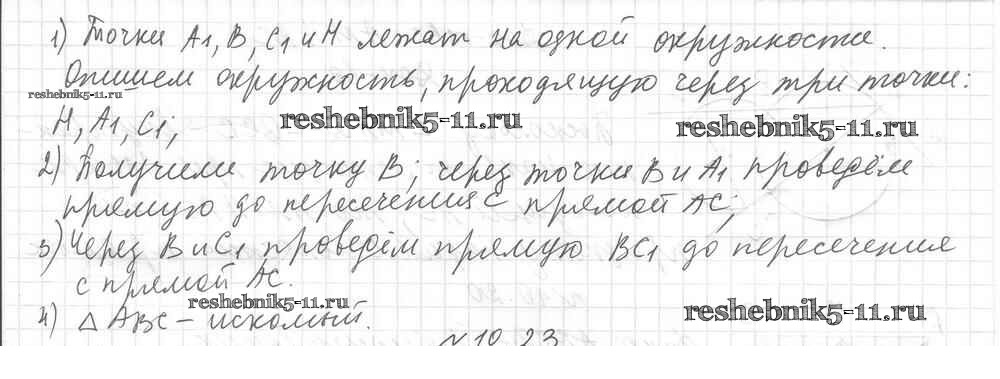 1) Точки A1, B, C1 и H лежат на одной окружности.
Опишем окружность, проходящую через три точки:
reshebnik5-11.ru
H, A1, C1;
reshebnik5-11.ru
reshebnik5-11.ru
2) Получили точку B; через точки B и A1 проведём
прямую до пересечения с прямой AC;
3) Через B и C1 проведём прямую BC1 до пересечения
с прямой AC.
reshebnik5-11.ru
reshebnik5-11.ru
4) △ ABC – искомый.
№10.23